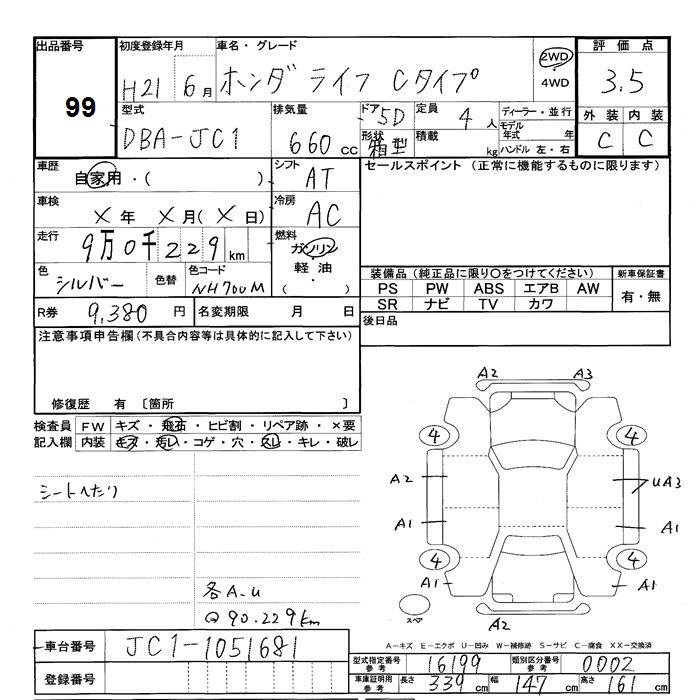 出品番号 初度登録年月 車名・グレード 2WD 評価点
99 H21 6月 ホンダ ライフ Cタイプ 4WD 3.5
型式 排気量 ドア 5D 定員 4人 ディーラー・並行 外装 内装
DBA-JC1 660cc 形状 箱型 積載 kg モデル年式 年 C C
ハンドル 左・右
車歴 自家用・( ) シフト AT セールスポイント (正常に機能するものに限ります)
車検 X年 X月(X日) 冷房 AC
走行 9万0千229km 燃料 ガソリン
軽油
・
( )
色 シルバー 色替 色コード NH700M 装備品 (純正品に限り○をつけてください) 新車保証書
PS PW ABS エアB AW 有・無
SR ナビ TV カワ
R券 9,380円 名変期限 月 日 後日品
注意事項申告欄(不具合内容等は具体的に記入して下さい)
修復歴 有 〔箇所 〕
検査員 FW キズ・飛石・ヒビ割・リペア跡・×要
記入欄 内装 キズ・汚レ・コゲ・穴・スレ・キレ・破レ
シートへたり
各A.u
@90.229km
A2 A3
4 4
A2 uA3
A1 A1
4 4
A1 A1
スペア A2
A-キズ E-エクボ U-凹み W-補修跡 S-サビ C-腐食 XX-交換済
車台番号 JC1-1051681
登録番号
型式指定番号 参考 16199 類別区分番号 参考 0002
車庫証明用 参考 長さ 339cm 幅 147cm 高さ 161cm